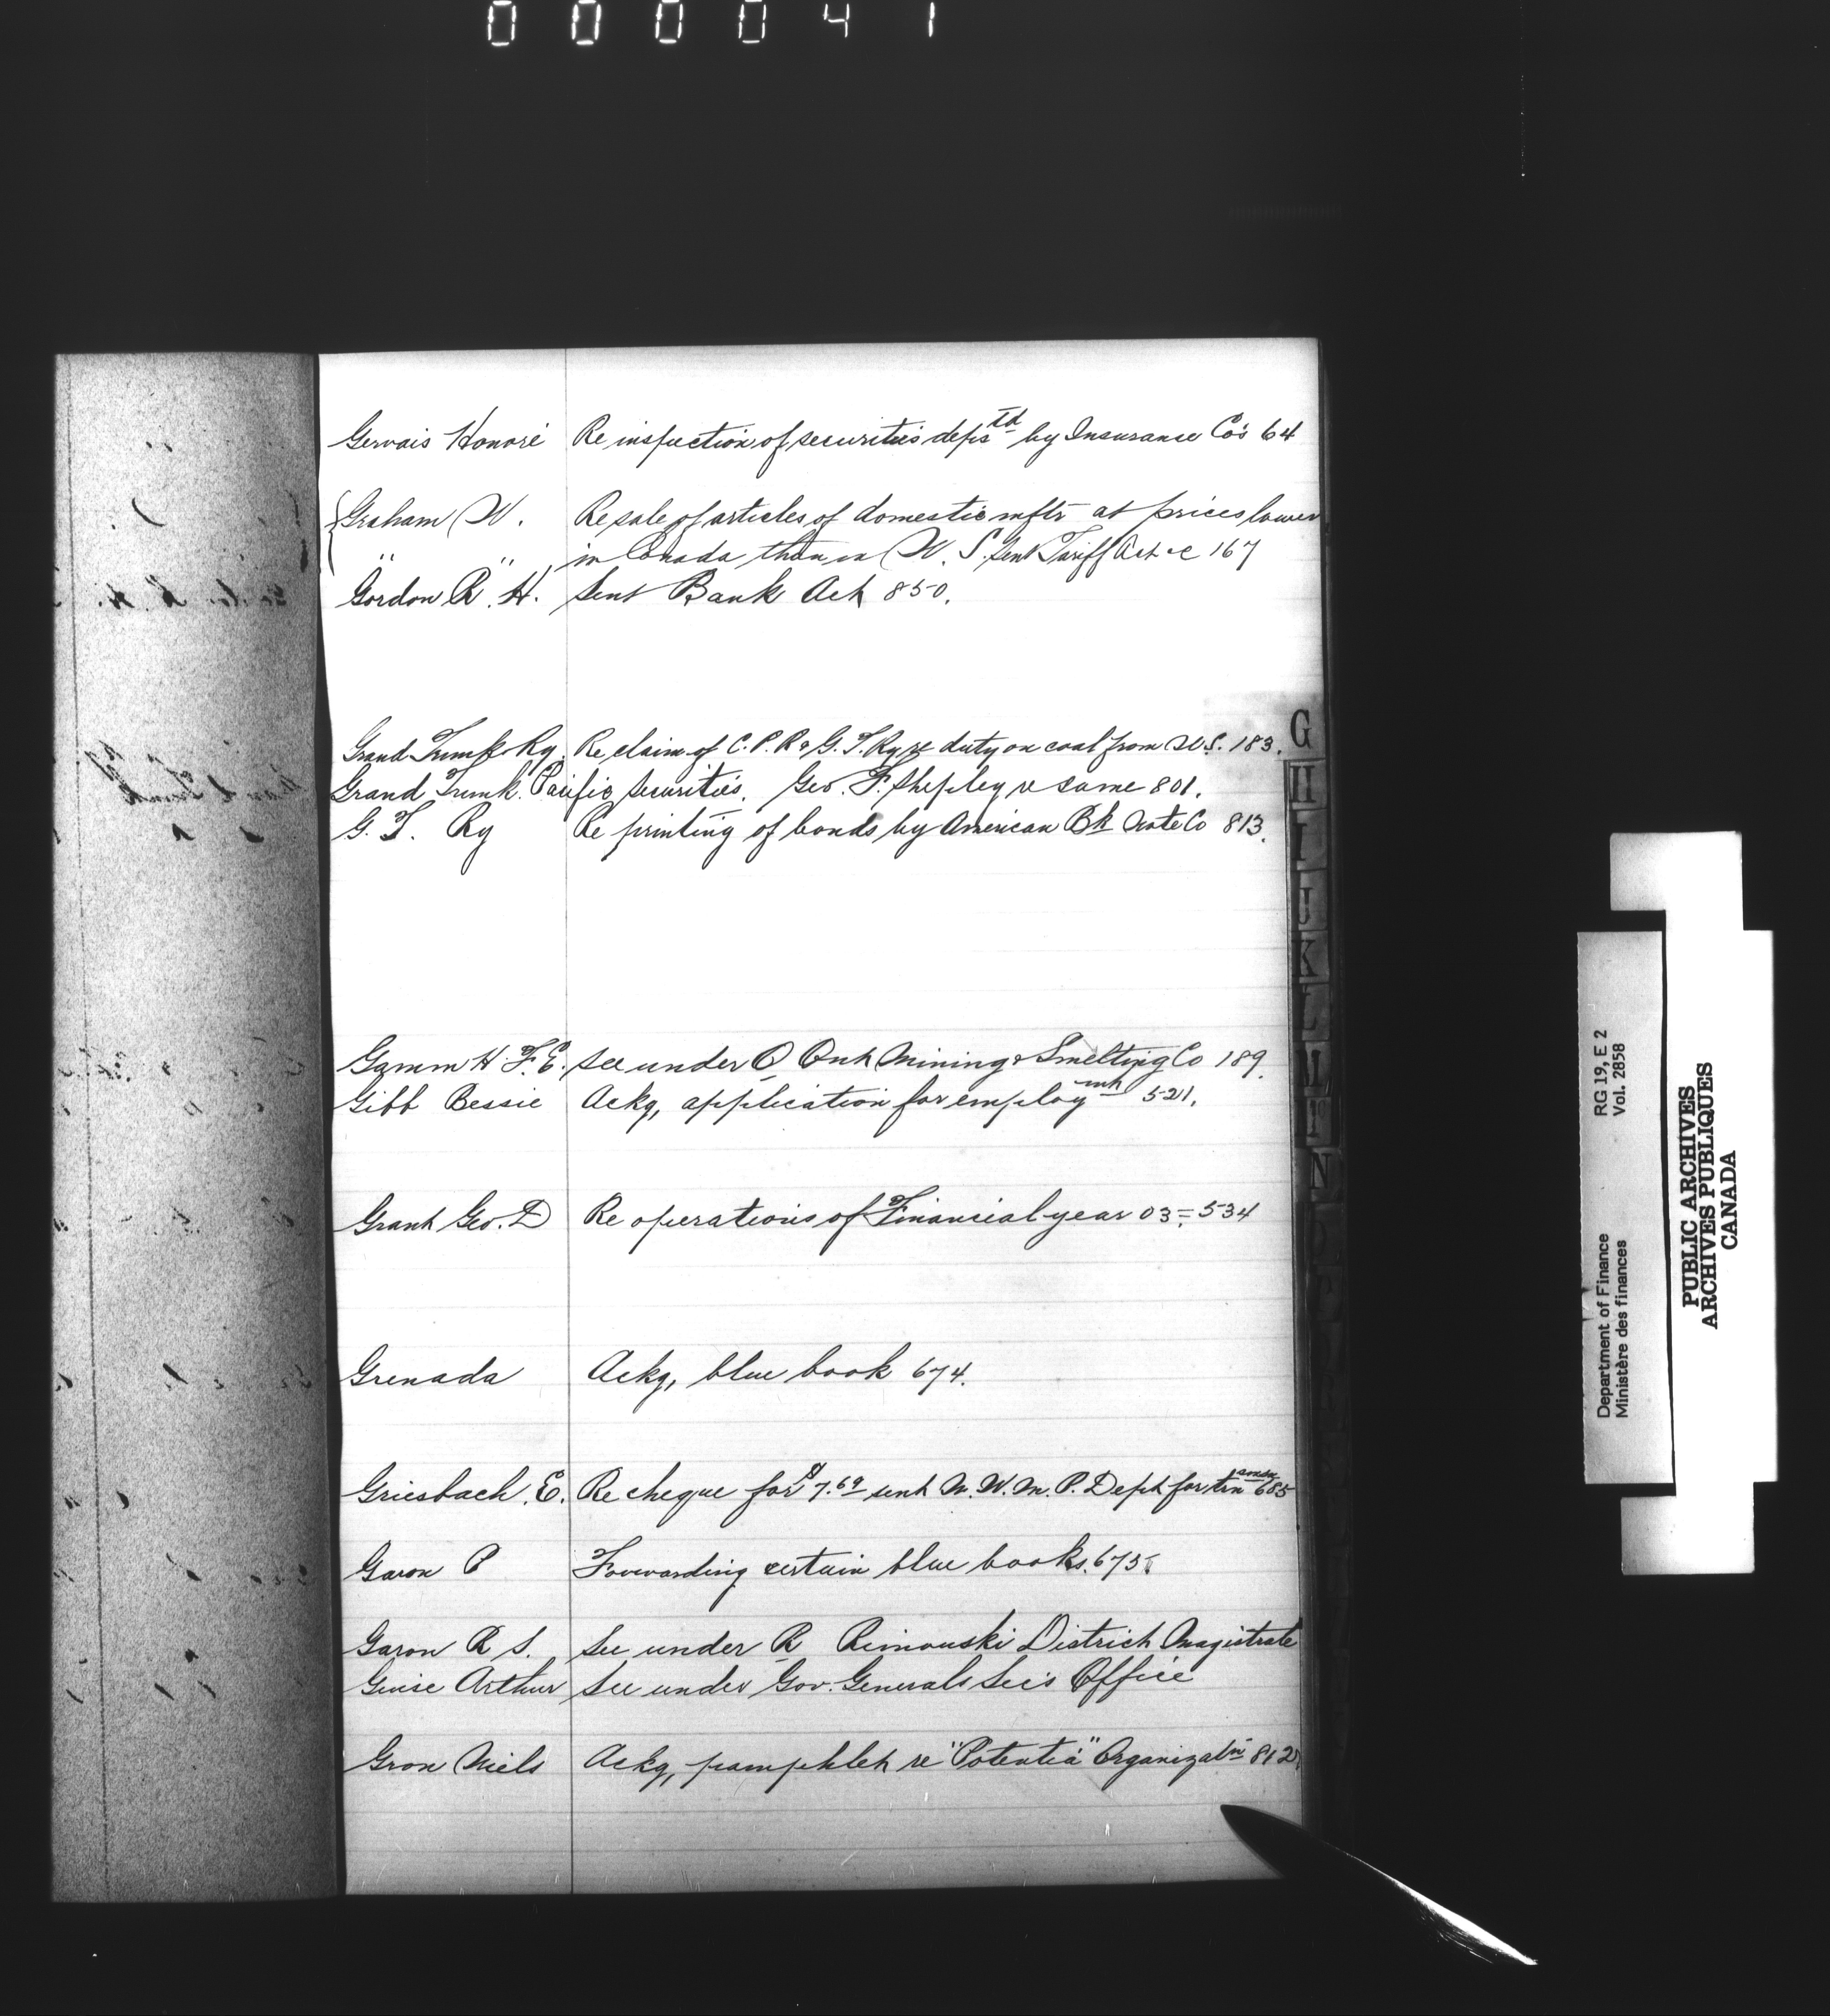 000041
Gervais Honoré Re inspection of securities deps'td by Insurance Co's 64
Graham W. Re sale of articles of domestic mftr at prices lower
" " in Canada than in U.S. sent Tariff Act &c 167
Gordon R. H. Sent Bank Act 850.
Grand Trunk Ry. Re claim of C.P.R & G.T. Ry re duty on coal from U.S. 183.
Grand Trunk Pacific securities. Geo. F. Shepley re same 801.
G. T. Ry Re printing of bonds by American Bk Note Co 813.
Gamm H. F. E. See under O Ont Mining & Smelting Co 189.
Gibb Bessie Ackg, application for employmnt 521.
Grant Geo. D Re operations of Financial year 03 = 534
Grenada Ackg, blue book 674.
Griesbach. E. Re cheque for $7.69 sent N.W.M.P. Dept for 685
Garon P Forwarding certain blue books. 675.
Garon R S. See under R Rimouski District Magistrate
Guise Arthur See under Gov. Generals Sec's Office
Gron Niels Ackg, pamphlet re "Potentia" Organizatn 812
G
H
I
J
K
L
N
Department of Finance RG 19, E 2
Ministère des finances Vol. 2858
PUBLIC ARCHIVES
ARCHIVES PUBLIQUES
CANADA